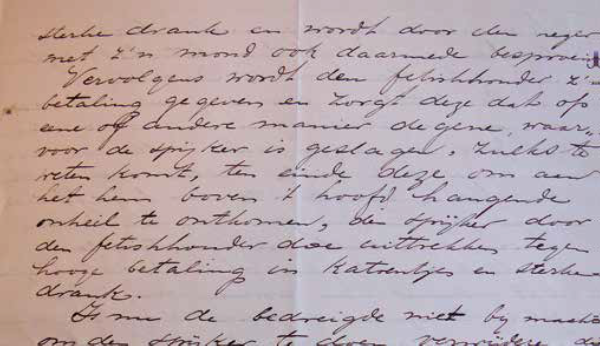 sterke drank en wordt door den neger
met z'n mond ook daarmede besproeid
Vervolgens wordt den fetishhouder z'n
betaling gegeven en zorgt deze dat op
eene of andere manier degene, waar„
voor de spijker is geslagen, zulks te
weten komt, ten einde deze om aan
het hem boven 't hoofd hangende
onheil te ontkomen, den spijker door
den fetishhouder doe uittrekken tegen
hooge betaling in katoentjes en sterke
drank.
Is nu de bedreigde niet by machte
om den spijker te doen verwijderen